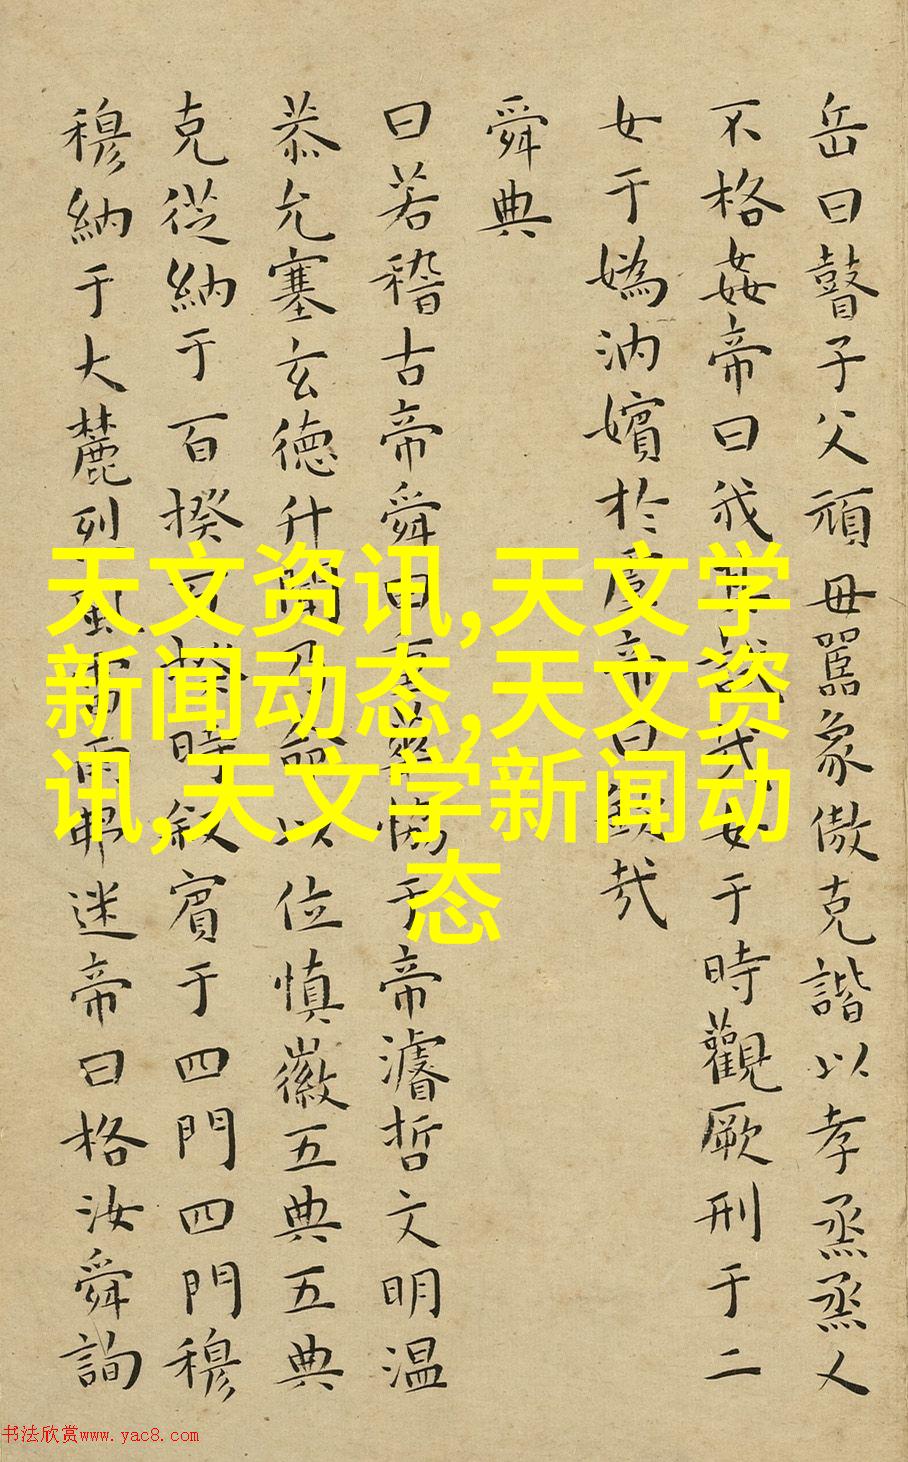 岳曰瞽子父頑母嚚象傲克諧以孝烝烝乂
不格姦帝曰我其試哉女于時觀厥刑于二
女于媯汭嬪於虞帝曰欽哉
舜典
曰若稽古帝舜曰重華協于帝濬哲文明温
恭允塞玄德升聞乃命以位慎徽五典五典
克從納于百揆百揆時叙賓于四門四門穆
穆納于大麓烈風雷雨弗迷帝曰格汝舜詢
天文资讯,天文学
新闻动态,天文资
讯,天文学新闻动
态
书法欣赏www.yac8.com